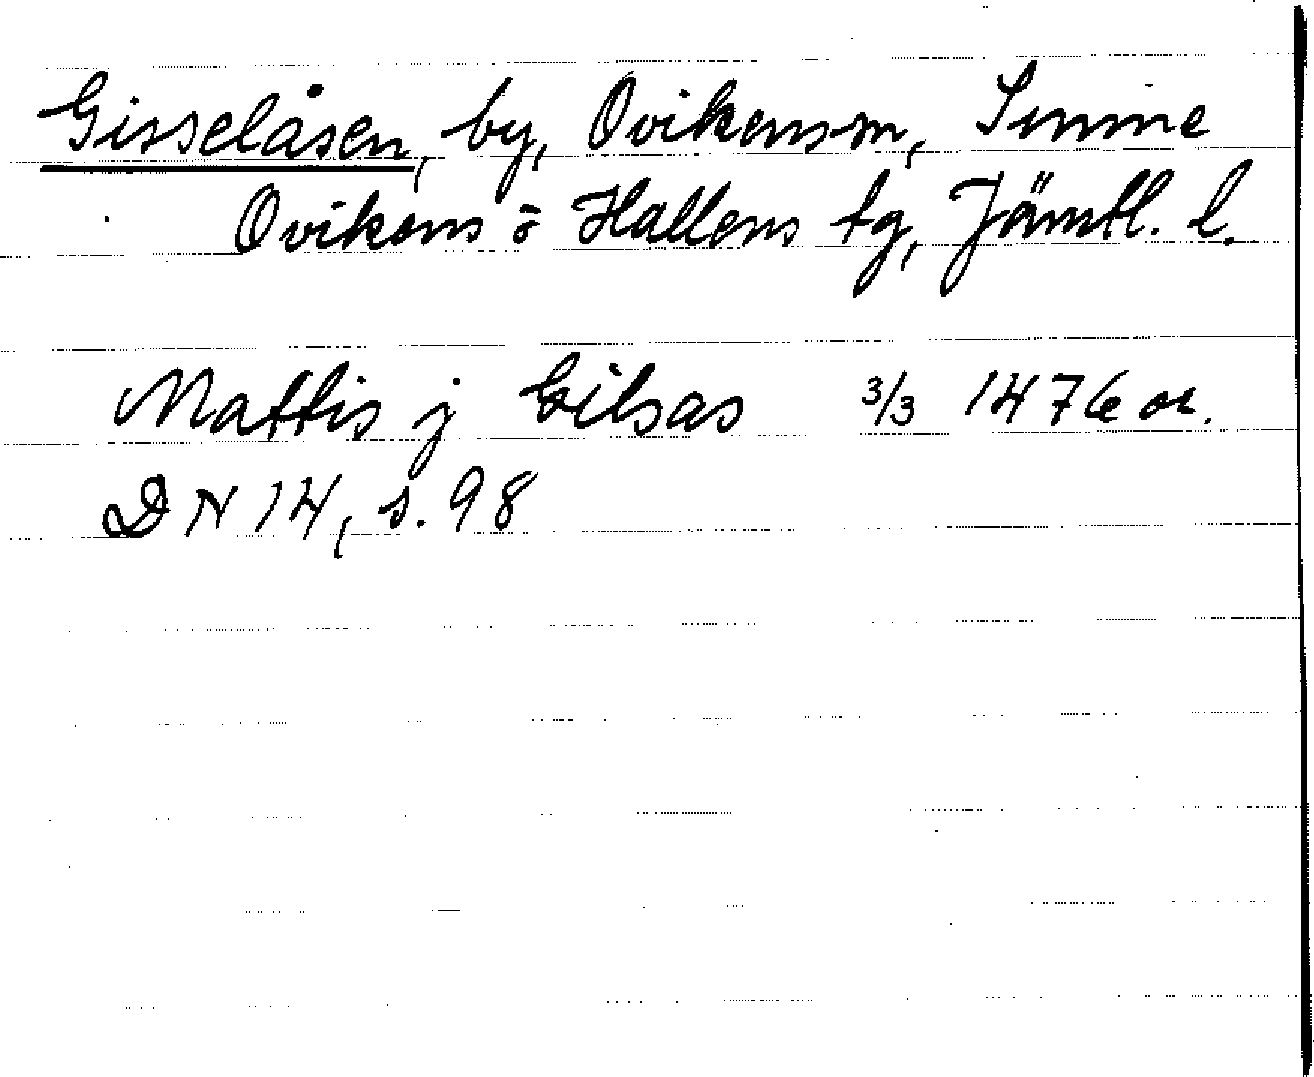 Gisselåsen, by, Ovikens sn, Sunne
Ovikens o Hallens tg, Jämtl. l.
Mattis j Gilsas 3/3 1476 or.
DN 14, s. 98